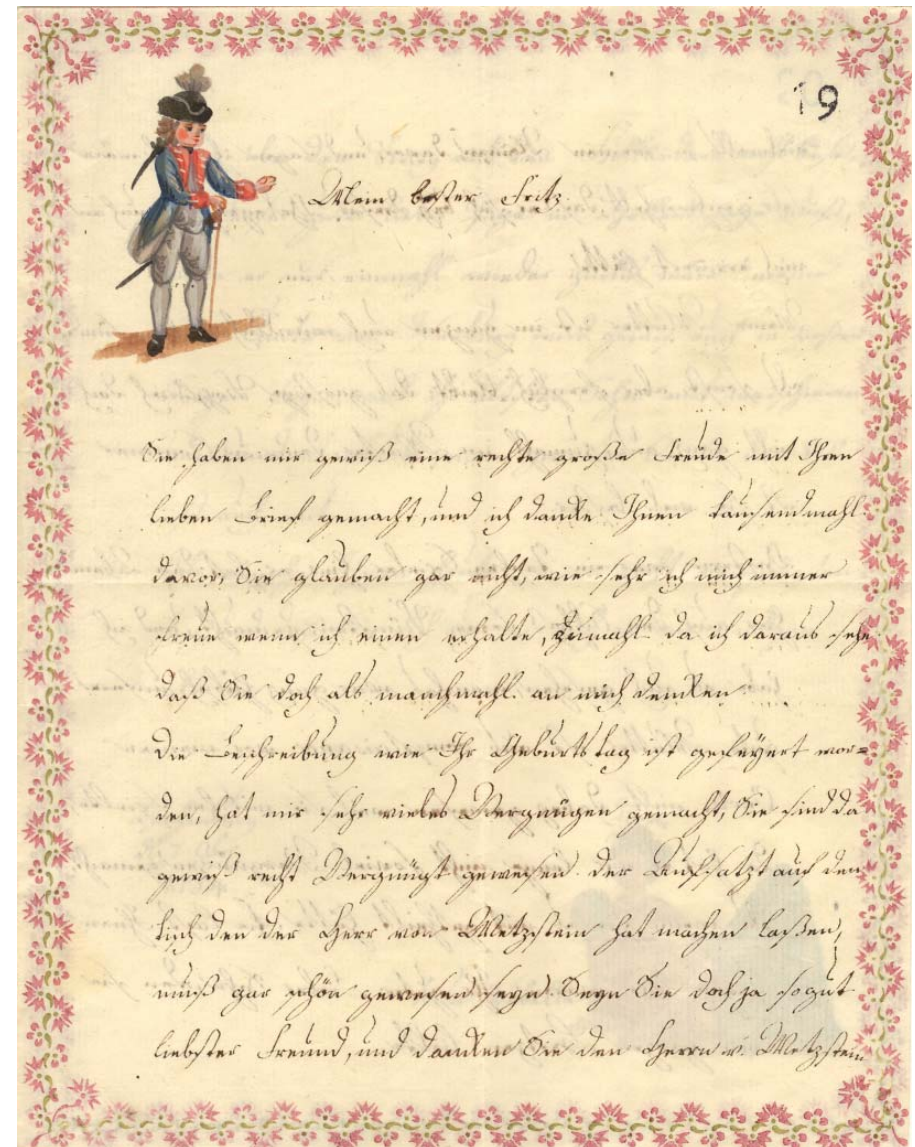 19
Mein bester Fritz.
Sie haben mir gewiß eine rechte große Freude mit Ihren
lieben Brief gemacht, und ich danke Ihnen tausendmahl
davor, Sie glauben gar nicht, wie sehr ich mich immer
freue wenn ich einen erhalte, zumahl da ich daraus sehe
daß Sie doch als manchmahl an mich denken.
Die Beschreibung wie Ihr Geburtstag ist gefeyert wor=
den, hat mir sehr vieles Vergnügen gemacht, Sie sind da
gewiß recht Vergnügt gewesen. der Aufsatzt auf den
tisch den der Herr von Metzstein hat machen laßen,
muß gar schön gewesen seyn. Seyn Sie doch ja so gut
liebster Freund, und danken Sie den Herrn v. Metzstein